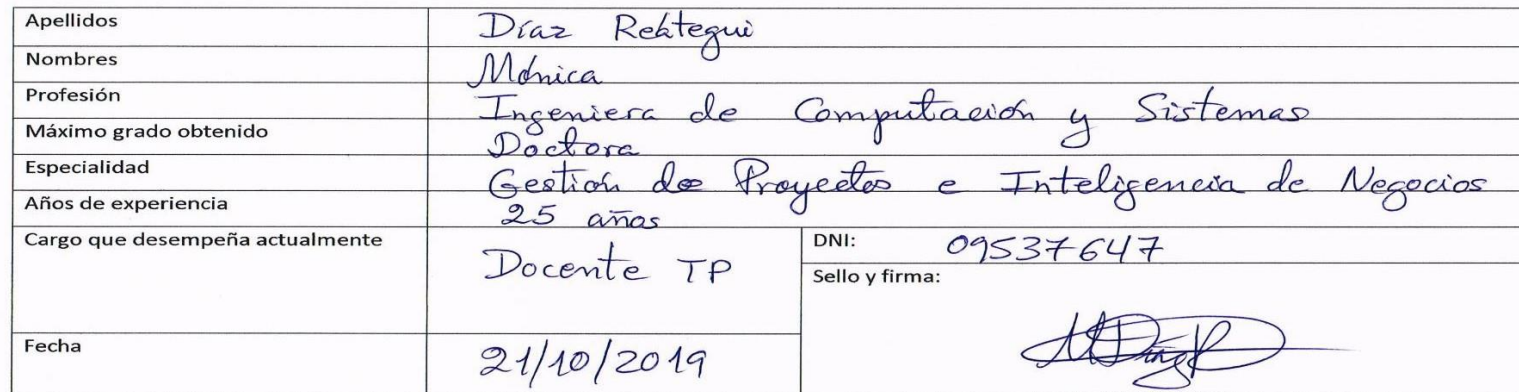 Apellidos Díaz Reátegui
Nombres Mónica
Profesión Ingeniera de Computación y Sistemas
Máximo grado obtenido Doctora
Especialidad Gestión de Proyectos e Inteligencia de Negocios
Años de experiencia 25 años
Cargo que desempeña actualmente Docente TP
DNI: 09537647
Sello y firma:
Fecha 21/10/2019